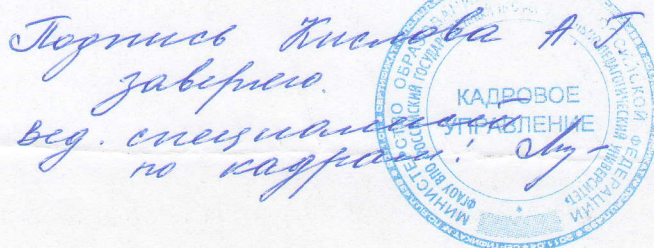 Подпись Кислова А Г.
заверяю.
вед. специалист
по кадрам:
КАДРОВОЕ
УПРАВЛЕНИЕ
МИНИСТЕРСТВО ОБРА
ФЕДЕРАЦИИ
ФГАОУ ВПО РОССИЙСКИЙ ГОСУДАР
ПЕДАГОГИЧЕСКИЙ УНИВЕРСИТЕТ